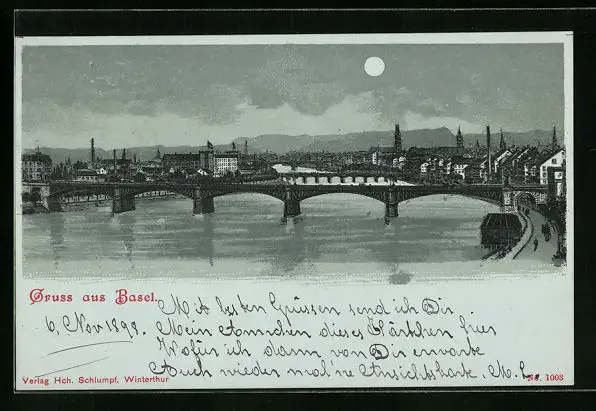 Gruss aus Basel.
6. Nov 1898.
Mit besten Grüssen send ich Dir
Mein Annchen dieses Kärtchen hier
Wofür ich dann von Dir erwarte
Auch wieder mal 'ne Ansichtskarte. M. L.
Verlag Hch. Schlumpf, Winterthur
No. 1003